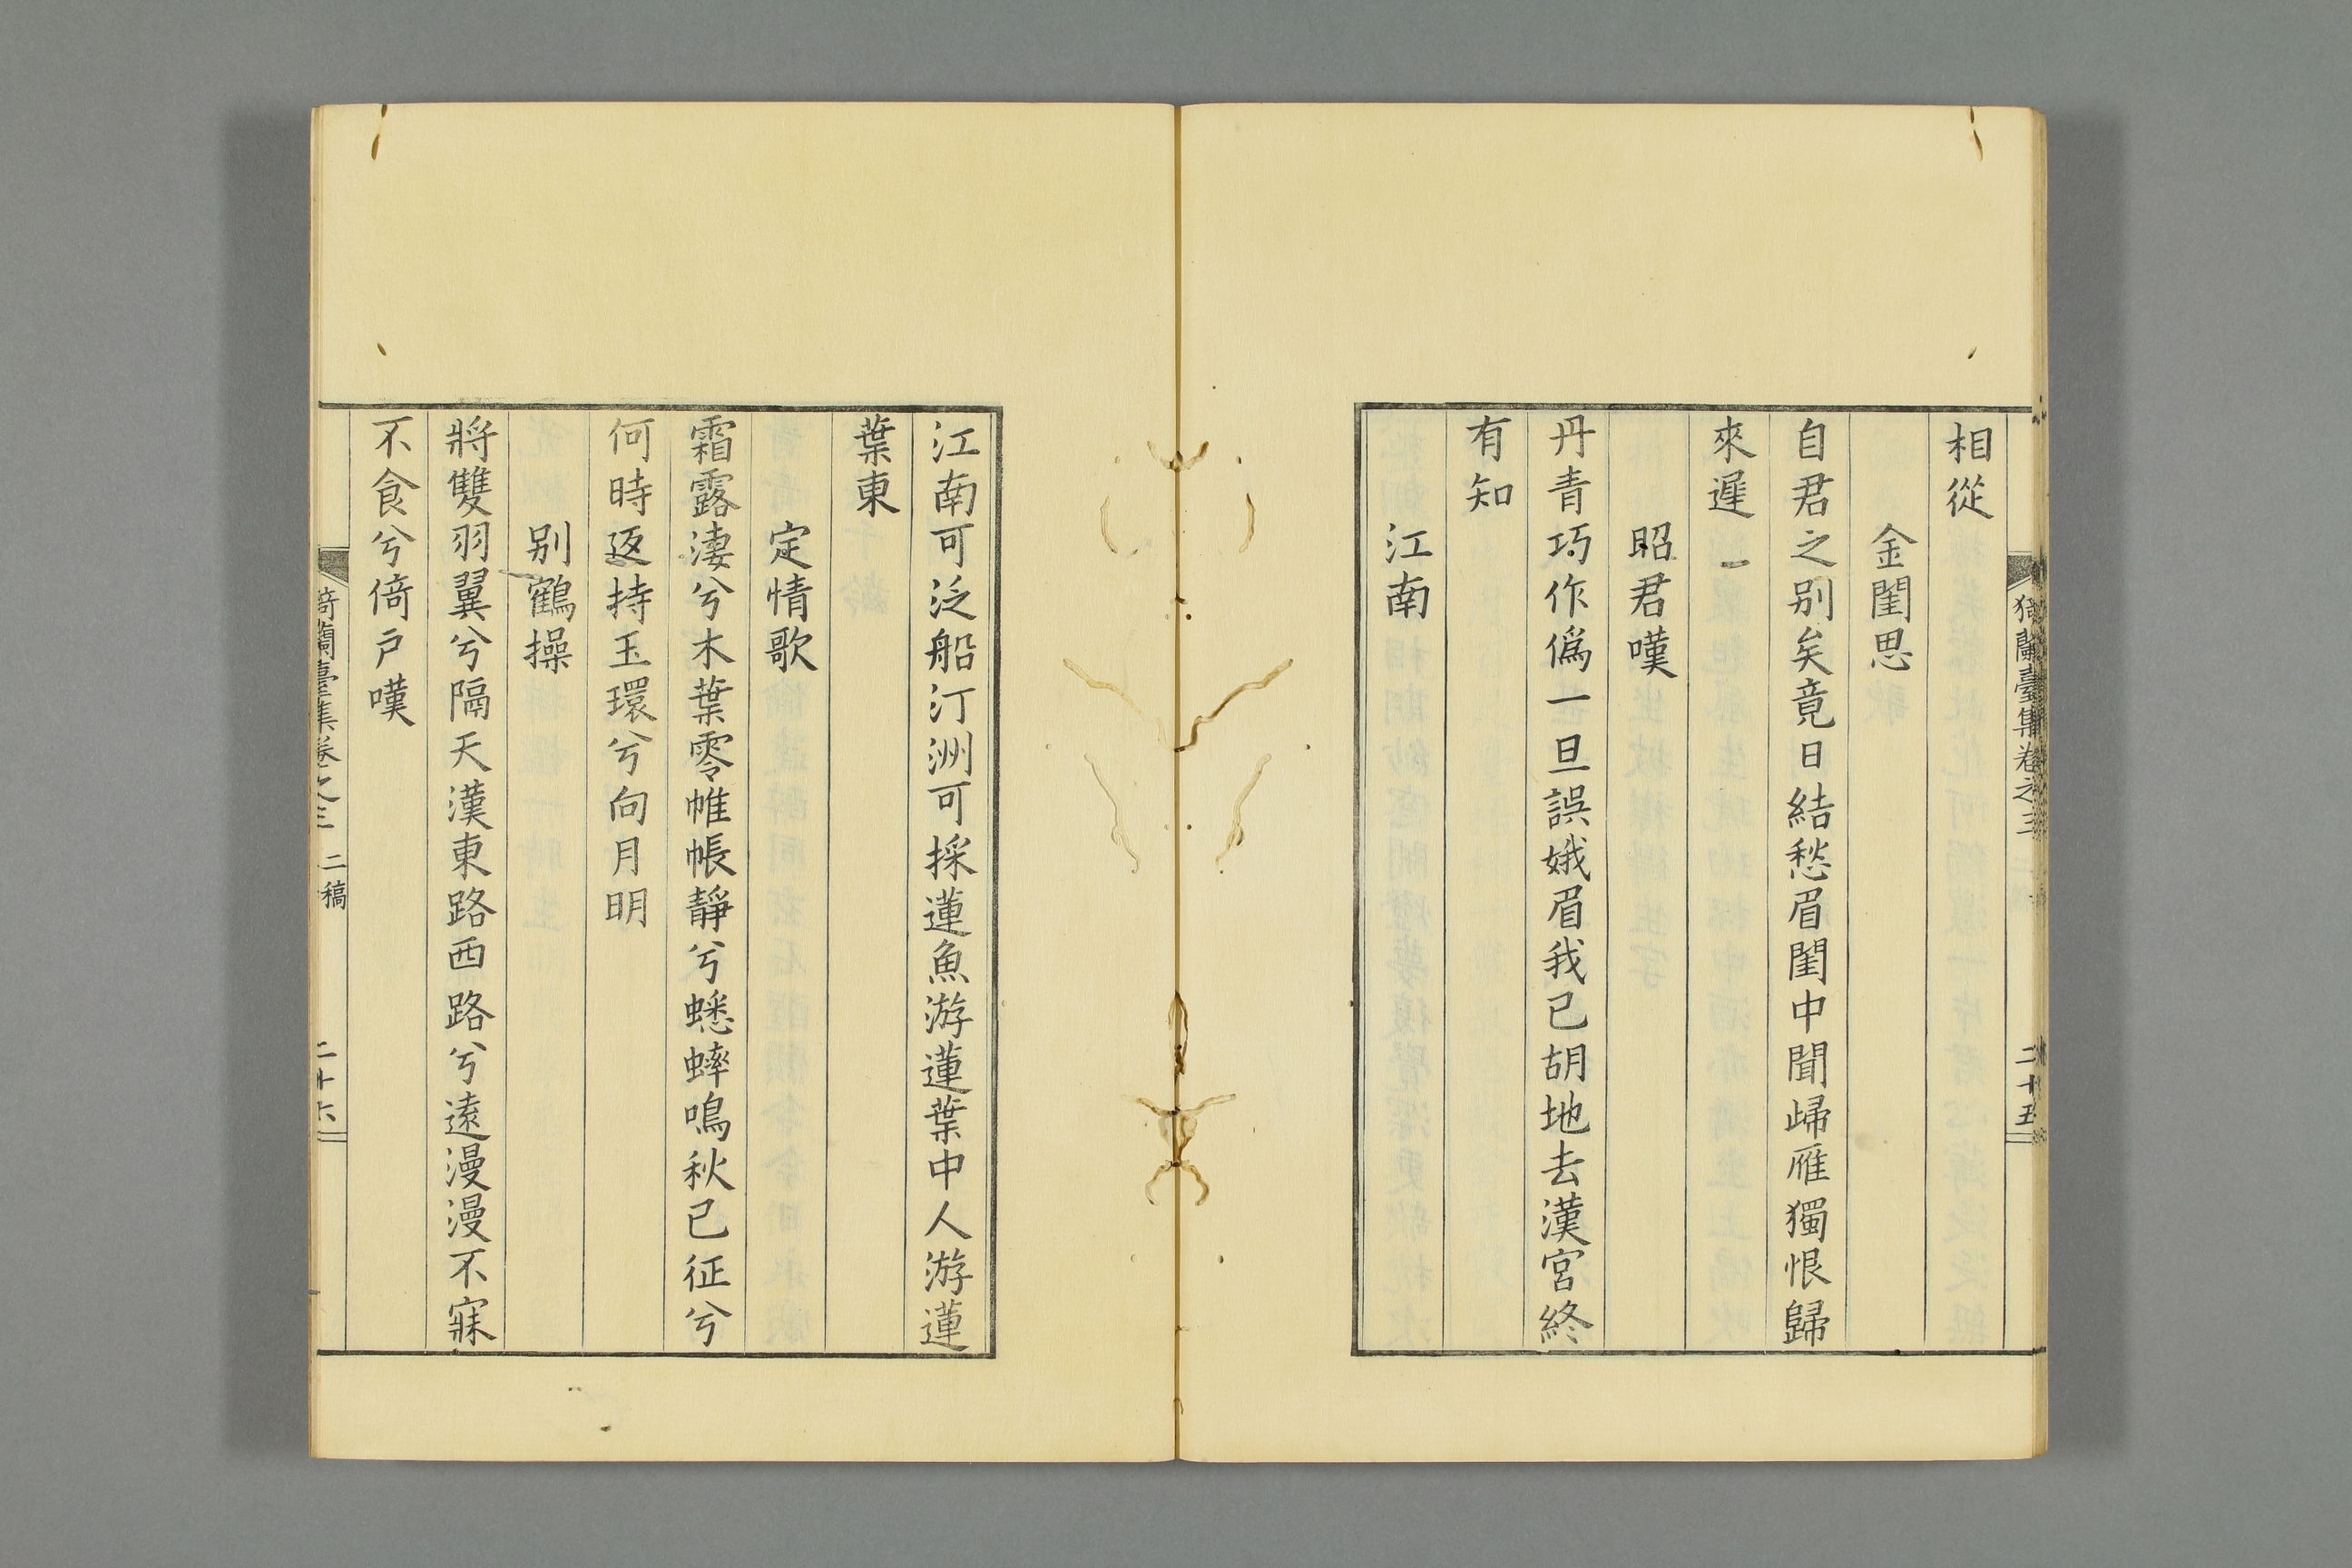 猗蘭臺集卷之三
二十五
相從
金閨思
自君之别矣竟日結愁眉閨中聞歸雁獨恨歸
來遲
昭君嘆
丹青巧作僞一旦誤娥眉我已胡地去漢宮終
有知
江南
江南可泛船汀洲可採蓮魚游蓮葉中人游蓮
葉東
定情歌
霜露淒兮木葉零帷帳靜兮蟋蟀鳴秋已征兮
何時返持玉環兮向月明
别鶴操
將雙羽翼兮隔天漢東路西路兮遠漫漫不寐
不食兮倚戸嘆
猗蘭臺集卷之三
二稿
二十六